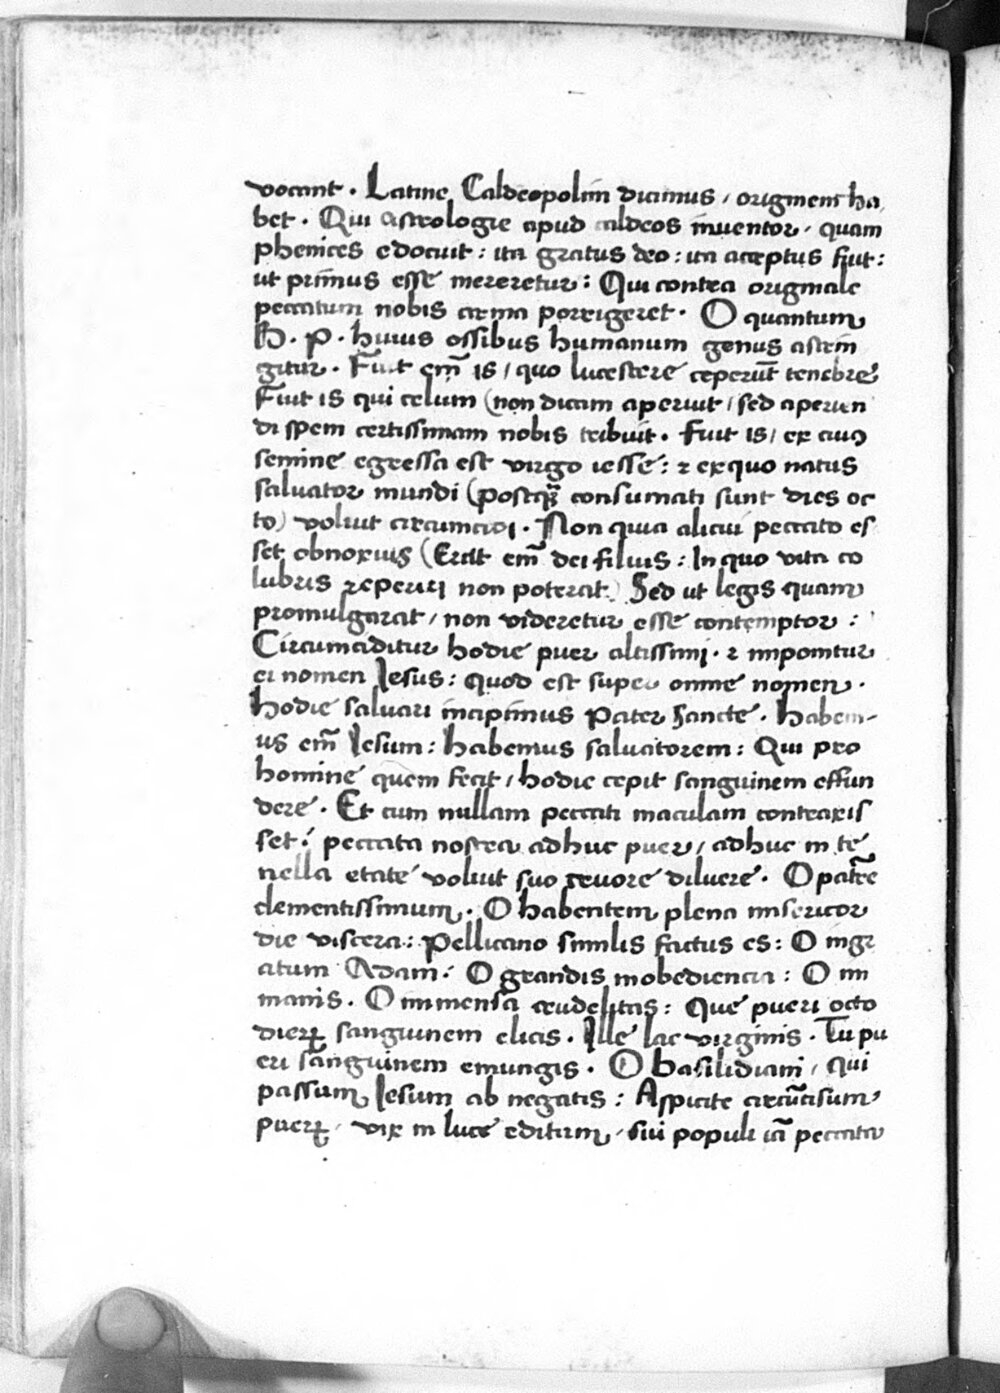 vocant . Latine Caldeopolim dicimus / originem ha
bet . Qui astrologie apud caldeos inventor / quam
phenices edocuit : ita gratus deo : ita acceptus fuit :
ut primus esse mereretur : Qui contra originale
peccatum nobis arma porrigeret . O quantum
B . P . huius ossibus humanum genus astrin
gitur . Fuit em̄ is / quo lucescere ceperūt tenebre
Fuit is qui celum (non dicam aperuit / sed aperien
di spem certissimam nobis tribuit . Fuit is / ex cuiꝯ
semine egressa est virgo iesse : ⁊ ex quo natus
salvator mundi (postqꝫ consumati sunt dies oc
to) voluit circumcidi . Non quia alicui peccato es
set obnoxius (Erat em̄ dei filius : In quo vita co
lubris reperiri non poterat) Sed ut legis quam
promulgarat / non videretur esse contemptor :
Circumciditur hodie puer altissimi . ⁊ imponitur
ei nomen Iesus : quod est super omne nomen .
hodie salvari incipimus Pater sancte . habem-
us em̄ Iesum : habemus salvatorem : Qui pro
homine quem fecit / hodie cepit sanguinem effun
dere . Et cum nullam peccati maculam contraxis
set : peccata nostra adhuc puer / adhuc in te
nella etate voluit suo cruore diluere . O patrē
clementissimum . O habentem plena misericor
die viscera : Pellicano similis factus es : O ingr
atum Adam : O grandis inobediencia : O im
manis . O immensa crudelitas : Que pueri octo
dieꝝ sanguinem elicis . Ille lac virginis . Tu pu
eri sanguinem emungis . O basilidiani / qui
passum Iesum ab negatis : Aspicite circūcisum
pueꝝ / vix in luce editum / sui populi iā peccata